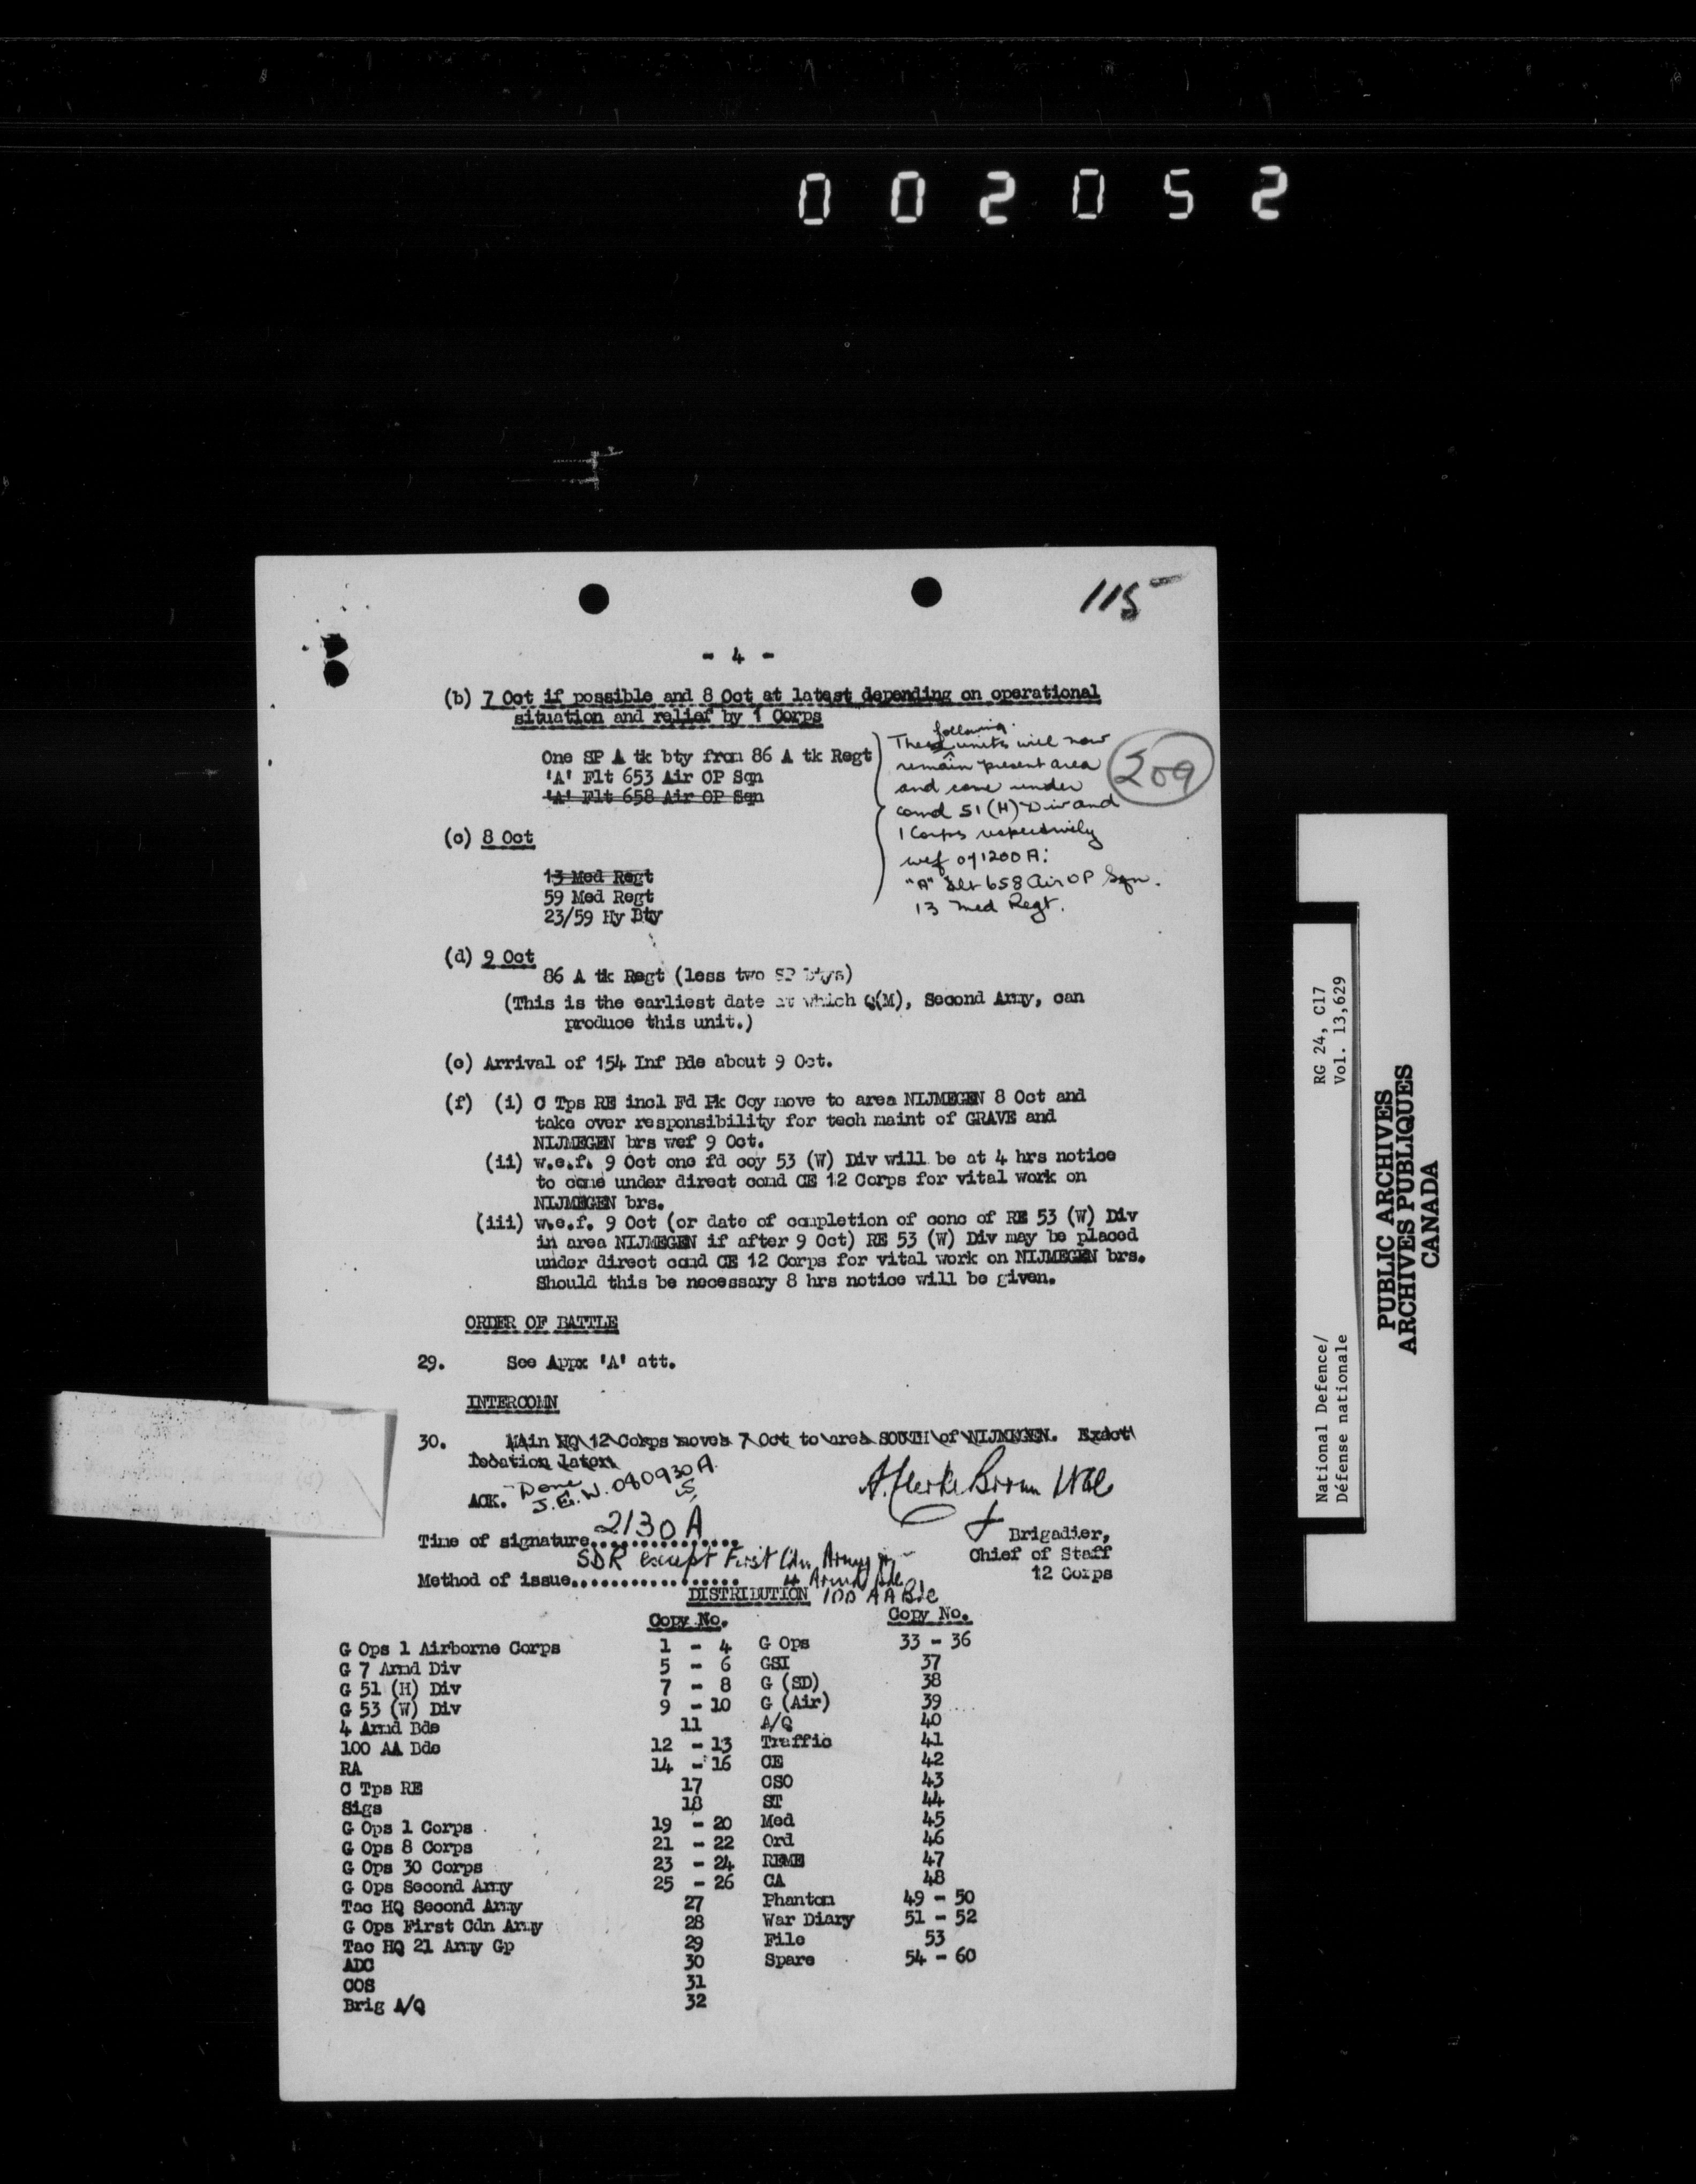 002052
115
- 4 -
(b) 7 Oct if possible and 8 Oct at latest depending on operational
situation and relief by 1 Corps
One SP A tk bty from 86 A tk Regt
'A' Flt 653 Air OP Sqn
'A' Flt 658 Air OP Sqn
following
These units will now
remain present area
and come under
comd 51 (H) Div and
1 Corps respectively
wef 071200A:
"A" Flt 658 Air OP Sqn.
13 Med Regt.
209
(c) 8 Oct
13 Med Regt
59 Med Regt
23/59 Hy Bty
(d) 9 Oct
86 A tk Regt (less two SP btys)
(This is the earliest date at which Q(M), Second Army, can
produce this unit.)
(e) Arrival of 154 Inf Bde about 9 Oct.
(f) (i) C Tps RE incl Fd Pk Coy move to area NIJMEGEN 8 Oct and
take over responsibility for tech maint of GRAVE and
NIJMEGEN brs wef 9 Oct.
(ii) w.e.f. 9 Oct one fd coy 53 (W) Div will be at 4 hrs notice
to come under direct comd CE 12 Corps for vital work on
NIJMEGEN brs.
(iii) w.e.f. 9 Oct (or date of completion of conc of RE 53 (W) Div
in area NIJMEGEN if after 9 Oct) RE 53 (W) Div may be placed
under direct comd CE 12 Corps for vital work on NIJMEGEN brs.
Should this be necessary 8 hrs notice will be given.
ORDER OF BATTLE
29. See Appx 'A' att.
INTERCOMN
30. Main HQ 12 Corps moves 7 Oct to area SOUTH of NIJMEGEN. Exact
location later.
ACK. Done
J.E.W. 080930A.
Time of signature 2130A
Brigadier,
Chief of Staff
12 Corps
Method of issue SDR except First Cdn Army
4 Armd Bde
100 AA Bde
DISTRIBUTION
Copy No. Copy No.
G Ops 1 Airborne Corps 1 - 4 G Ops 33 - 36
G 7 Armd Div 5 - 6 GSI 37
G 51 (H) Div 7 - 8 G (SD) 38
G 53 (W) Div 9 - 10 G (Air) 39
4 Armd Bde 11 A/Q 40
100 AA Bde 12 - 13 Traffic 41
RA 14 - 16 CE 42
C Tps RE 17 CSO 43
Sigs 18 ST 44
G Ops 1 Corps 19 - 20 Med 45
G Ops 8 Corps 21 - 22 Ord 46
G Ops 30 Corps 23 - 24 REME 47
G Ops Second Army 25 - 26 CA 48
Tac HQ Second Army 27 Phantom 49 - 50
G Ops First Cdn Army 28 War Diary 51 - 52
Tac HQ 21 Army Gp 29 File 53
ADC 30 Spare 54 - 60
COS 31
Brig A/Q 32
National Defence/ RG 24, C17
Défense nationale Vol. 13,629
PUBLIC ARCHIVES
ARCHIVES PUBLIQUES
CANADA